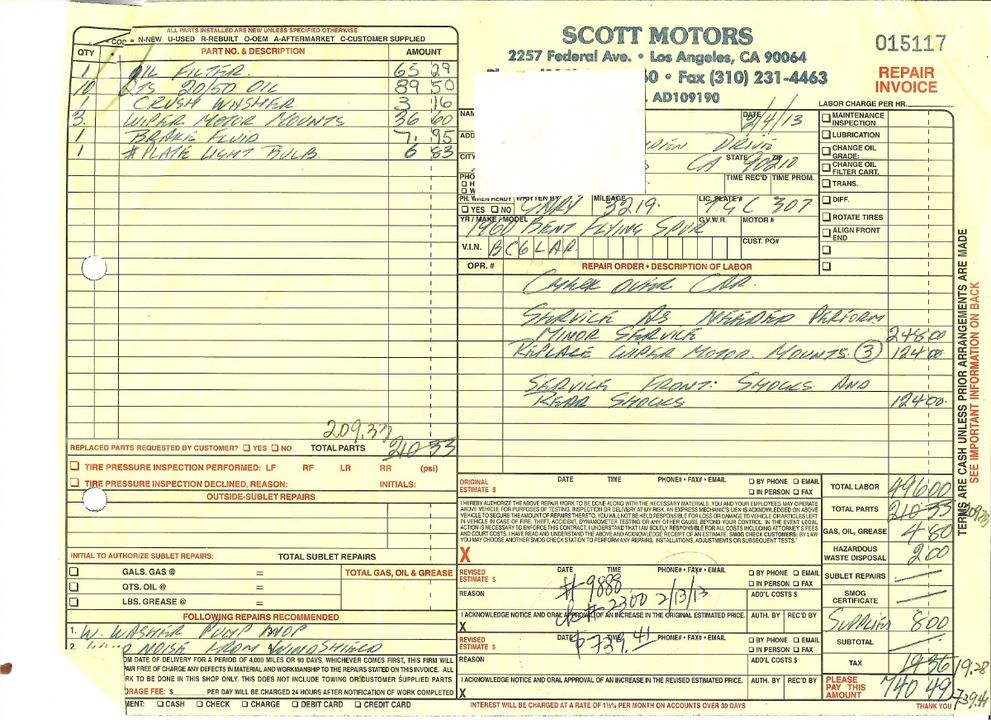 ALL PARTS INSTALLED ARE NEW UNLESS SPECIFIED OTHERWISE
CODE = N-NEW U-USED R-REBUILT O-OEM A-AFTERMARKET C-CUSTOMER SUPPLIED
QTY PART NO. & DESCRIPTION AMOUNT
1 OIL FILTER 65 29
10 QTS 20/50 OIL 89 50
1 CRUSH WASHER 3 16
3 WIPER MOTOR MOUNTS 36 60
1 BRAKE FLUID 7.95
1 # PLATE LIGHT BULB 6 83
209.33
REPLACED PARTS REQUESTED BY CUSTOMER? YES NO TOTAL PARTS 210 33
TIRE PRESSURE INSPECTION PERFORMED: LF RF LR RR (psi)
TIRE PRESSURE INSPECTION DECLINED, REASON: INITIALS:
OUTSIDE-SUBLET REPAIRS
INITIAL TO AUTHORIZE SUBLET REPAIRS: TOTAL SUBLET REPAIRS
GALS. GAS @ = TOTAL GAS, OIL & GREASE
QTS. OIL @ =
LBS. GREASE @ =
FOLLOWING REPAIRS RECOMMENDED
1. W. WASHER PUMP INOP
2. WIND NOISE FROM WINDSHIELD
OM DATE OF DELIVERY FOR A PERIOD OF 4,000 MILES OR 90 DAYS, WHICHEVER COMES FIRST, THIS FIRM WILL
PAIR FREE OF CHARGE ANY DEFECTS IN MATERIAL AND WORKMANSHIP TO THE REPAIRS STATED ON THIS INVOICE. ALL
RK TO BE DONE IN THIS SHOP ONLY. THIS DOES NOT INCLUDE TOWING OR CUSTOMER SUPPLIED PARTS
ORAGE FEE: $ PER DAY WILL BE CHARGED 24 HOURS AFTER NOTIFICATION OF WORK COMPLETED
MENT: CASH CHECK CHARGE DEBIT CARD CREDIT CARD
SCOTT MOTORS
2257 Federal Ave. • Los Angeles, CA 90064
60 • Fax (310) 231-4463
AD109190
015117
REPAIR
INVOICE
LABOR CHARGE PER HR.
NAM DATE 2/4/13
ADD DRIVE
CITY STATE CA ZIP 90210
PHO TIME REC'D TIME PROM.
PH. WHEN READY YES NO WRITTEN BY GARY MILEAGE 3219. LIC. PLATE # TGC 307
YR / MAKE / MODEL 1960 BENT FLYING SPUR G.V.W.R. MOTOR #
V.I.N. BC6LAR CUST. PO#
MAINTENANCE INSPECTION
LUBRICATION
CHANGE OIL GRADE:
CHANGE OIL FILTER CART.
TRANS.
DIFF.
ROTATE TIRES
ALIGN FRONT END
OPR. # REPAIR ORDER • DESCRIPTION OF LABOR
CHECK OVER CAR.
SERVICE AS NEEDED PERFORM
MINOR SERVICE 248 00
REPLACE WIPER MOTOR MOUNTS (3) 124 00
SERVICE FRONT SHOCKS AND
REAR SHOCKS 124 00
TERMS ARE CASH UNLESS PRIOR ARRANGEMENTS ARE MADE
SEE IMPORTANT INFORMATION ON BACK
ORIGINAL ESTIMATE $ DATE TIME PHONE# • FAX# • EMAIL BY PHONE EMAIL IN PERSON FAX
I HEREBY AUTHORIZE THE ABOVE REPAIR WORK TO BE DONE ALONG WITH THE NECESSARY MATERIALS. YOU AND YOUR EMPLOYEES MAY OPERATE
ABOVE VEHICLE FOR PURPOSES OF TESTING, INSPECTION OR DELIVERY AT MY RISK. AN EXPRESS MECHANIC'S LIEN IS ACKNOWLEDGED ON ABOVE
VEHICLE TO SECURE THE AMOUNT OF REPAIRS THERETO. YOU WILL NOT BE HELD RESPONSIBLE FOR LOSS OR DAMAGE TO VEHICLE OR ARTICLES LEFT
IN VEHICLE IN CASE OF FIRE, THEFT, ACCIDENT,
X
REVISED ESTIMATE $ DATE TIME PHONE# • FAX# • EMAIL BY PHONE EMAIL IN PERSON FAX
REASON ADD'L COSTS $
#-9888
ck # 2300 2/13/13
$739.41
I ACKNOWLEDGE NOTICE AND ORAL APPROVAL OF AN INCREASE IN THE ORIGINAL ESTIMATED PRICE. AUTH. BY REC'D BY
X
REVISED ESTIMATE $ DATE TIME PHONE# • FAX# • EMAIL BY PHONE EMAIL IN PERSON FAX
REASON ADD'L COSTS $
I ACKNOWLEDGE NOTICE AND ORAL APPROVAL OF AN INCREASE IN THE REVISED ESTIMATED PRICE. AUTH. BY REC'D BY
X
TOTAL LABOR 496 00
TOTAL PARTS 210 33 209.33
GAS, OIL, GREASE 4 80
HAZARDOUS WASTE DISPOSAL 2 00
SUBLET REPAIRS —
SMOG CERTIFICATE —
SUPPLIES 8 00
SUBTOTAL —
TAX 19 36 19.28
PLEASE PAY THIS AMOUNT 740 49 739.41
INTEREST WILL BE CHARGED AT A RATE OF 1½% PER MONTH ON ACCOUNTS OVER 30 DAYS THANK YOU